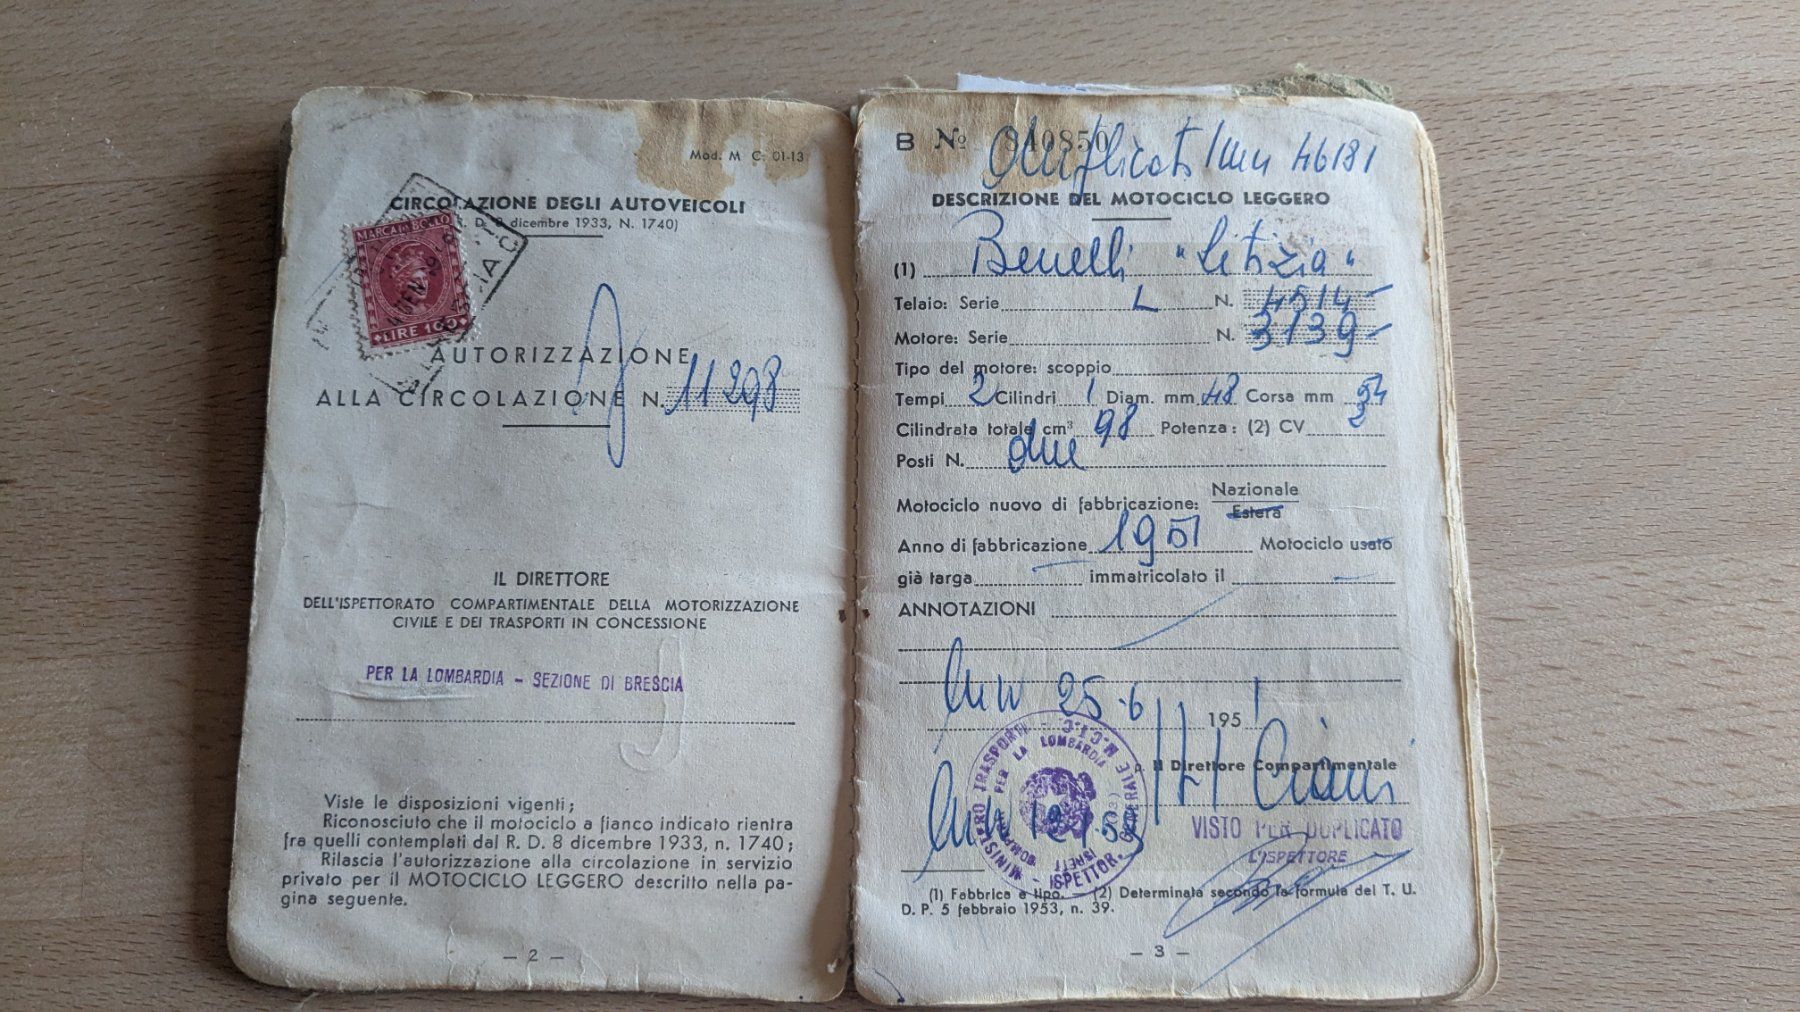 Mod. M C. 01-13
CIRCOLAZIONE DEGLI AUTOVEICOLI
R. D. 8 dicembre 1933, N. 1740)
MARCA DA BOLLO
LIRE 100
AUTORIZZAZIONE
ALLA CIRCOLAZIONE N. 11298
IL DIRETTORE
DELL'ISPETTORATO COMPARTIMENTALE DELLA MOTORIZZAZIONE
CIVILE E DEI TRASPORTI IN CONCESSIONE
PER LA LOMBARDIA - SEZIONE DI BRESCIA
Viste le disposizioni vigenti;
Riconosciuto che il motociclo a fianco indicato rientra
fra quelli contemplati dal R. D. 8 dicembre 1933, n. 1740;
Rilascia l'autorizzazione alla circolazione in servizio
privato per il MOTOCICLO LEGGERO descritto nella pa-
gina seguente.
— 2 —
B Nº 840850
Duplicato 46181
DESCRIZIONE DEL MOTOCICLO LEGGERO
(1) Benelli "Letizia"
Telaio: Serie L N. 4514
Motore: Serie N. 3139
Tipo del motore: scoppio
Tempi 2 Cilindri 1 Diam. mm 48 Corsa mm 54
Cilindrata totale cm³ 98 Potenza: (2) CV 2
Posti N. due
Motociclo nuovo di fabbricazione: Nazionale
Estera
Anno di fabbricazione 1951 Motociclo usato
già targa immatricolato il
ANNOTAZIONI
25-6 1951
Il Direttore Compartimentale
MINISTERO TRASPORTI - ISPETTOR. GENERALE M.C.T.C.
PER LA LOMBARDIA
VISTO PER DUPLICATO
L'ISPETTORE
(1) Fabbrica e tipo. — (2) Determinata secondo la formula del T. U.
D. P. 5 febbraio 1953, n. 39.
— 3 —